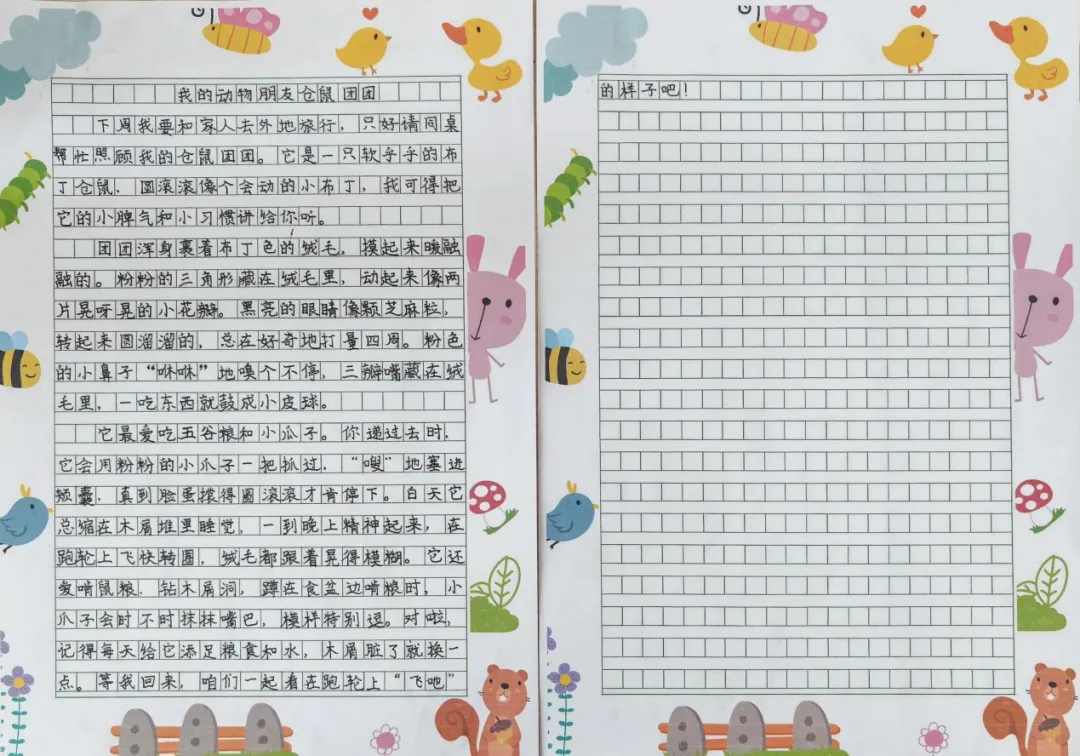 我的动物朋友仓鼠团团
下周我要和家人去外地旅行，只好请同桌
帮忙照顾我的仓鼠团团。它是一只软乎乎的布
丁仓鼠，圆滚滚像个会动的小布丁，我可得把
它的小脾气和小习惯讲给你听。
团团浑身裹着布丁色的绒毛，摸起来暖融
融的。粉粉的三角形藏在绒毛里，动起来像两
片晃呀晃的小花瓣。黑亮的眼睛像颗芝麻粒，
转起来圆溜溜的，总在好奇地打量四周。粉色
的小鼻子“咻咻”地嗅个不停，三瓣嘴藏在绒
毛里，一吃东西就鼓成小皮球。
它最爱吃五谷粮和小瓜子。你递过去时，
它会用粉粉的小爪子一把抓过，“嗖”地塞进
颊囊，真到脸蛋撑得圆滚滚才肯停下。白天它
总缩在木屑堆里睡觉，一到晚上精神起来，在
跑轮上飞快转圆，绒毛都跟着晃得模糊。它还
爱啃鼠粮，钻木屑洞，蹲在食盆边啃粮时，小
爪子会时不时抹抹嘴巴，模样特别逗。对啦，
记得每天给它添足粮食和水，木屑脏了就换一
点。等我回来，咱们一起看在跑轮上“飞吧”
的样子吧！